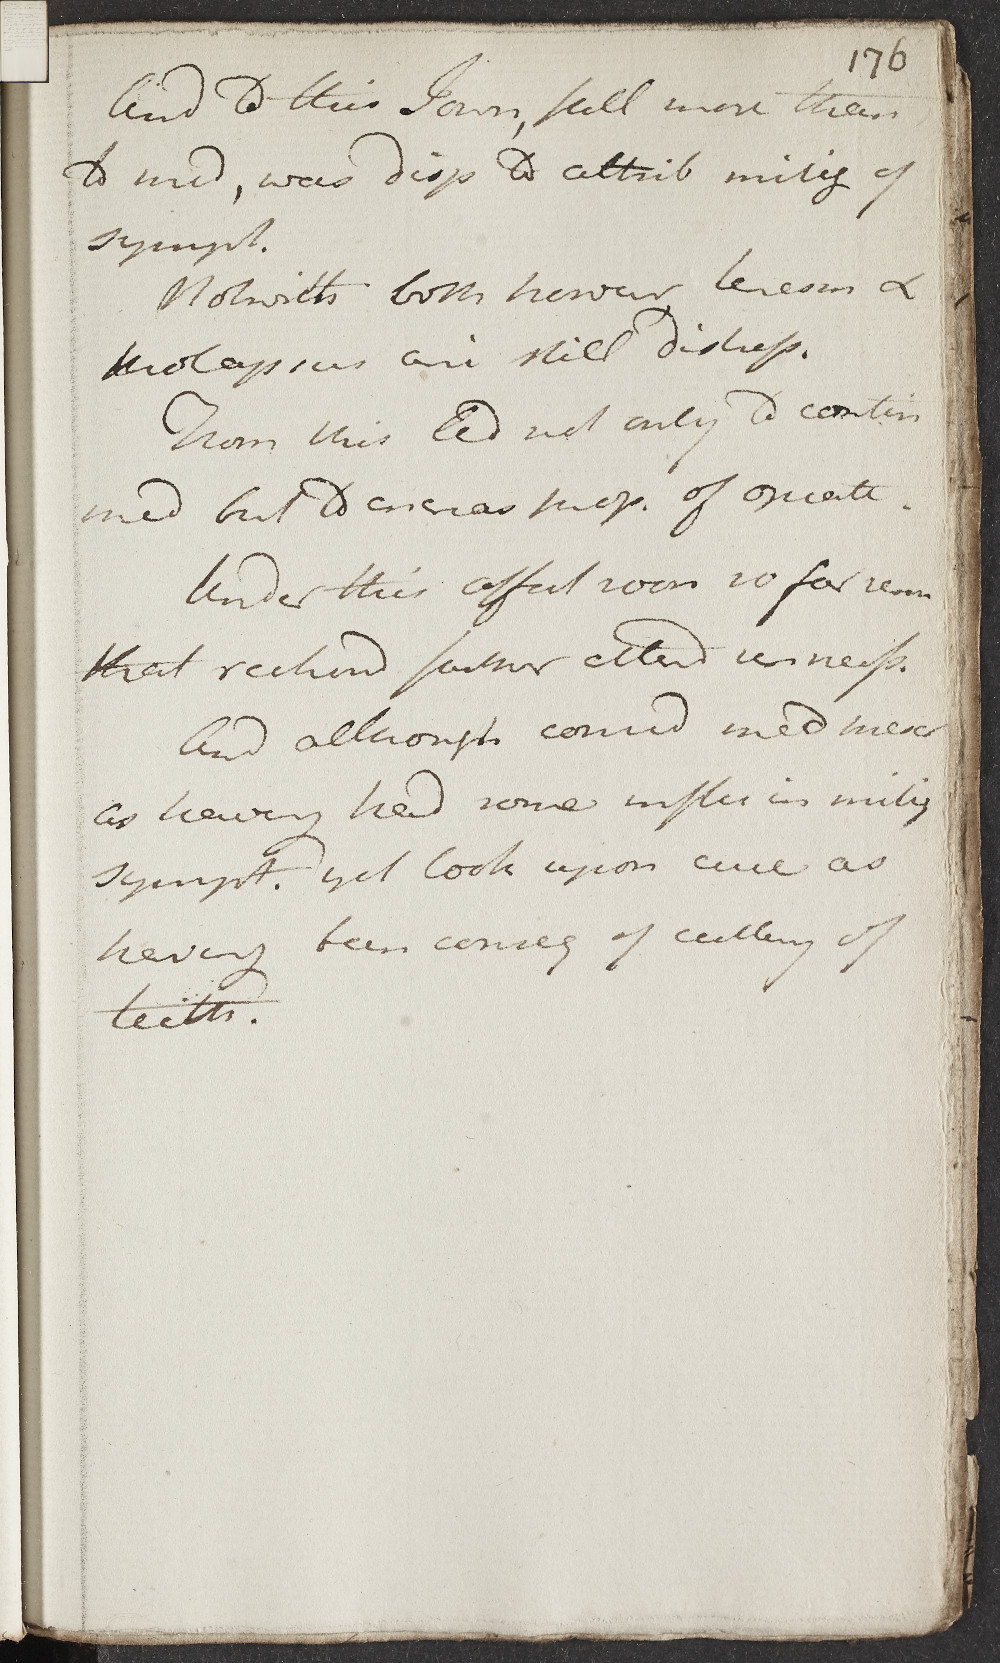 176
And to this I own, still more than
to med, was disp to attrib mitig of
sympt.
Notwith both howevr, tenesm &
prolapsus ani still distress.
From this led not only to contin
med but to encreas prop. of opiate.
Under this affect soon so far rem
that reckond farther attend unness.
And although conceivd med
as having had some influ in mitig
sympt. yet look upon cure as
having been conseq of cutting of
teeth.